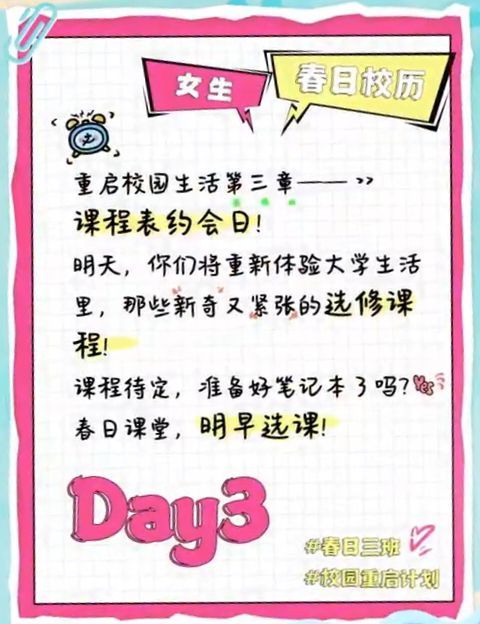 女生
春日校历
重启校园生活第三章——>>
课程表约会日!
明天，你们将重新体验大学生活
里，那些新奇又紧张的选修课
程!
课程待定，准备好笔记本了吗?Yes
春日课堂，明早选课!
Day3
#春日三班
#校园重启计划